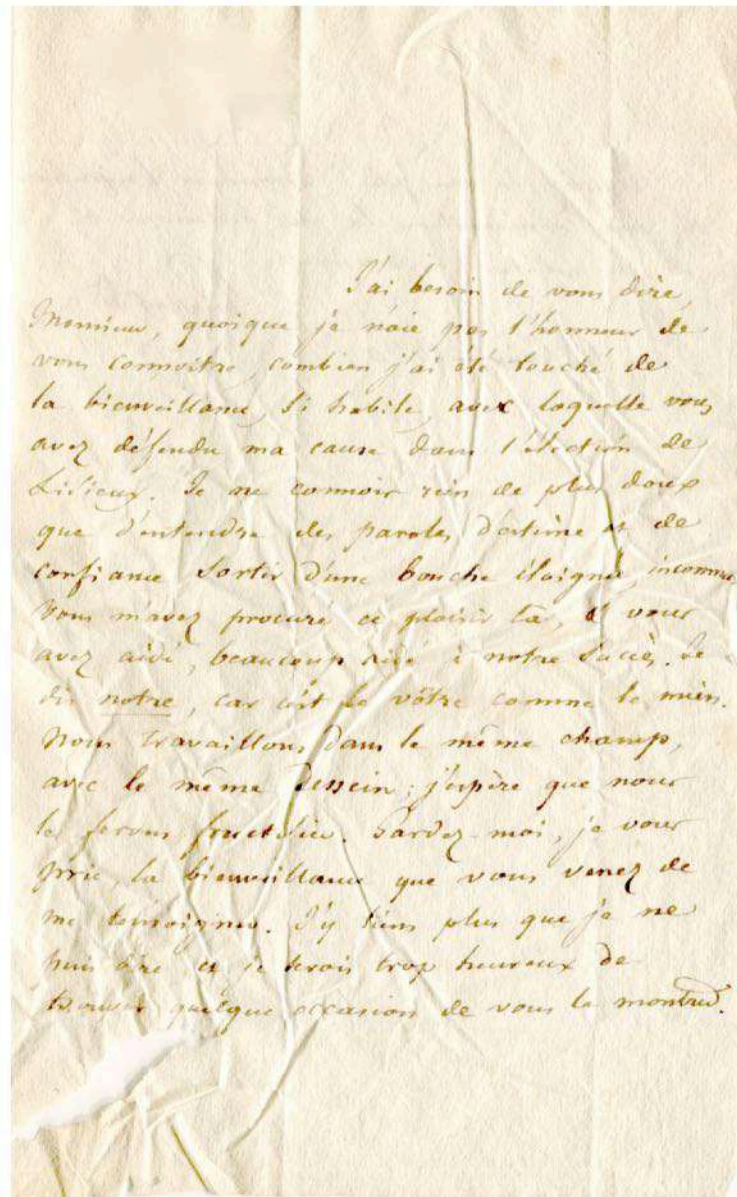 J'ai besoin de vous dire,
Monsieur, quoique je n'aie pas l'honneur de
vous connoître, combien j'ai été touché de
la bienveillance, si habile, avec laquelle vous
avez défendu ma cause dans l'élection de
Lisieux. Je ne connois rien de plus doux
que d'entendre des paroles d'estime et de
confiance sortir d'une bouche éloignée, inconnue.
Vous m'avez procuré ce plaisir là, et vous
avez aidé, beaucoup aidé à notre succès. Je
dis notre, car c'est le vôtre comme le mien.
Nous travaillons dans le même champ,
avec le même dessein; j'espère que nous
le ferons fructifier. Gardez-moi, je vous
prie, la bienveillance que vous venez de
me témoigner. J'y tiens plus que je ne
puis dire et je serois trop heureux de
trouver quelque occasion de vous le montrer.